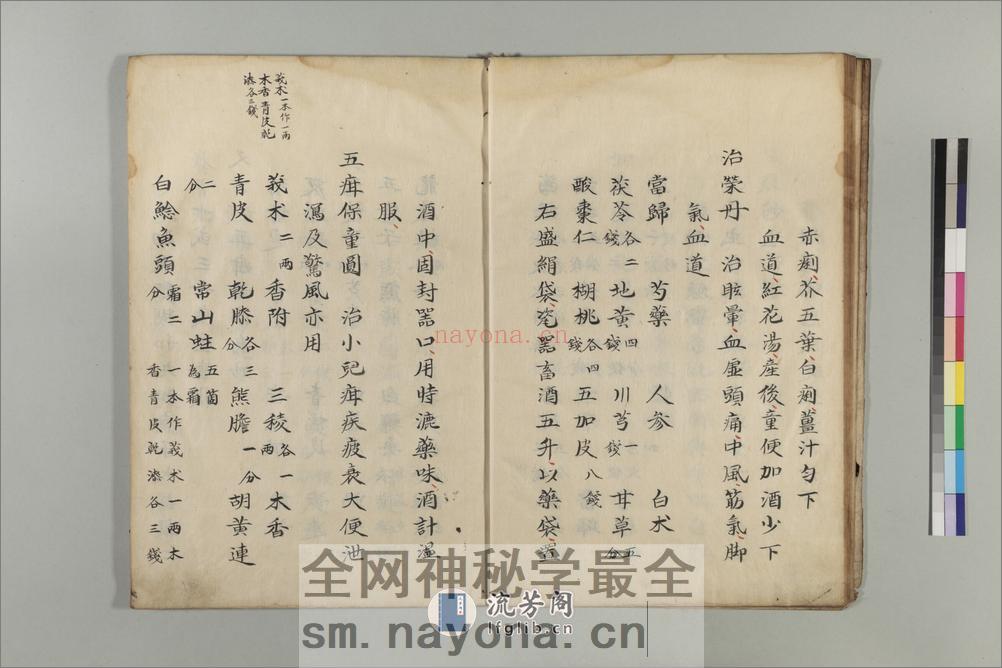 赤痢、茶五葉、白痢、薑汁勻下
血道、紅花湯、産後、童便加酒少下
治榮丹　治眩暈、血虛頭痛、中風、筋氣、脚
氣、血道
當歸　芍藥　人参　白朮
茯苓各二錢　地黄四錢　川芎一錢　甘草五分
酸棗仁　胡桃各四錢　五加皮八錢
右盛絹袋、瓷器畜酒五升、以藥袋置
酒中固封器口、用時漉藥味、酒計溫
服、
五疳保童圓　治小兒疳疾疲衰大便泄
瀉及驚風亦用
莪朮二兩　香附　三稜各一兩　木香
青皮　乾膝各三分　熊膽一分　胡黄連
二分　常山蛀五箇為霜
白鯰魚頭霜二分　一本作莪朮一兩木香青皮乾漆各三錢
莪朮一本作一兩
木香青皮乾
漆各三錢
nayona.cn
全网神秘学最全
流芳阁
lfglib.cn
sm.nayona.cn